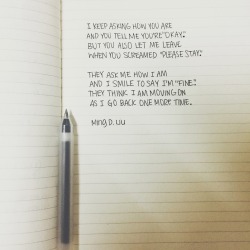 I KEEP ASKING HOW YOU ARE
AND YOU TELL ME YOU'RE "OKAY."
BUT YOU ALSO LET ME LEAVE
WHEN YOU SCREAMED "PLEASE STAY."
THEY ASK ME HOW I AM
AND I SMILE TO SAY I'M "FINE."
THEY THINK I AM MOVING ON
AS I GO BACK ONE MORE TIME.
MING D. LIU